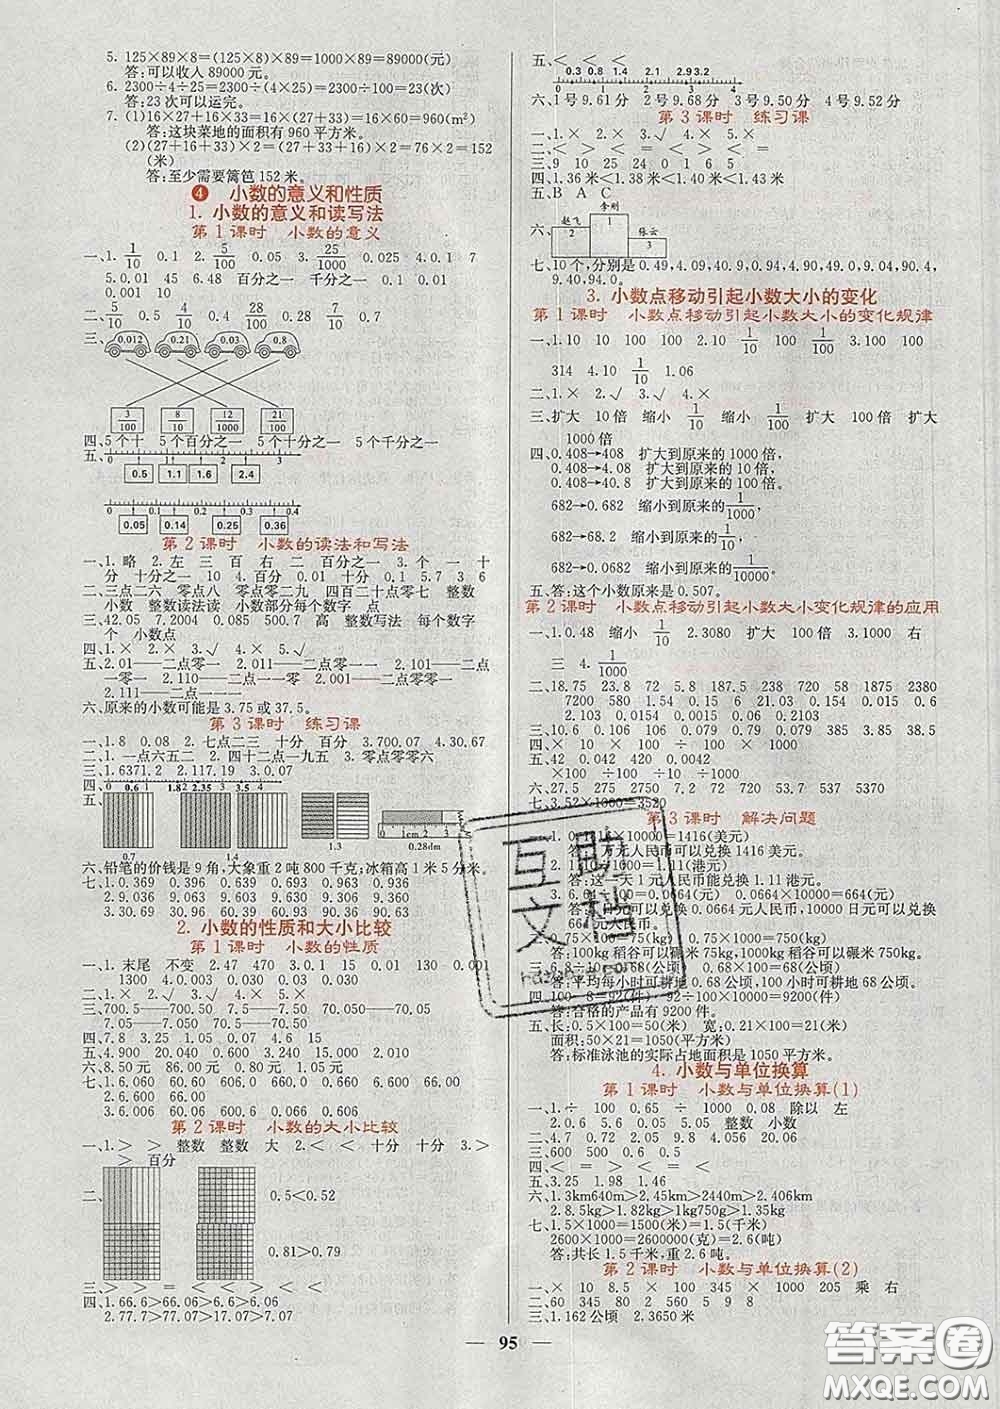 5. 125×89×8=(125×8)×89=1000×89=89000(元)
答:可以收入 89000 元。
6. 2300÷4÷25=2300÷(4×25)=2300÷100=23(次)
答:23 次可以运完。
7. (1)16×27+16×33=16×(27+33)=16×60=960(m²)
答:这块菜地的面积有 960 平方米。
(2)(27+33+16)×2=(27+33+16)×2=76×2=152
(米)
答:至少需要篱笆 152 米。
4 小数的意义和性质
1. 小数的意义和读写法
第 1 课时 小数的意义
一、1. 1/10 0.1 2. 5/100 0.05 3. 25/1000 0.025 4. 0.1 7
5. 0.01 45 6. 48 百分之一 千分之一 0.1 0.01
0.001 10
二、5/10 0.5 4/10 0.4 3/10 0.3 7/10 0.7
三、0.012 0.21 0.03 0.8
3/100 8/10 12/1000 21/100
四、5 个十 5 个百分之一 5 个十分之一 5 个千分之一
五、0 1 2 3
0.5 1.1 1.6 2.4
0 0.1 0.2 0.3 0.4
0.05 0.14 0.25 0.36
第 2 课时 小数的读法和写法
一、1. 略 2. 左 三 百 右 二 百分之一 3. 个 一 十
分 十分之一 10 4. 百分 0.01 十分 0.1 5. 7 3 6
二、三点二六 零点六八 零点零二九 四百二十点零七 整数
小数 整数读法读 小数部分每个数字 点
三、42.05 7.2004 0.085 500.7 高 整数写法 每个数字
个 小数点
四、1. × 2. × 3. √ 4. × 5. √
五、2.01——二点零一 2.011——二点零一一 2.101——二点
一零一 2.110——二点一一零 2.001——二点零零一
2.111——二点一一一
六、原来的小数可能是 3.75 或 37.5。
第 3 课时 练习课
一、1. 8 0.08 2. 七点二三 十分 百分 3. 700.07 4. 30.67
二、1. 一点六五二 2. 四十二点一九五 3. 零点零零六
三、1. 6371.2 2. 117.19 3. 0.07
四、0 0.6 1 1.8 2 2.35 3 3.5 4
五、0.7 1.4 1.3 0.28dm
0 1cm 2 3
六、铅笔的价钱是 9 角,大象重 2 吨 800 千克;冰箱高 1 米 5 分米。
七、1. 0.369 0.396 0.639 0.693 0.936 0.963
2. 3.069 3.096 6.039 6.093 9.036 9.063
3. 30.69 30.96 60.39 60.93 90.36 90.63
2. 小数的性质和大小比较
第 1 课时 小数的性质
一、1. 末尾 不变 2. 47 470 3. 0.1 0.01 130 0.001
1300 4. 0.003 0.03 0.03 0.003
二、1. × 2. √ 3. √ 4. ×
三、700.5——700.50 7.5——7.50 70.050——70.05
7.05——7.050 70.50——70.5
四、7.8 3.25 1.05 0.07 4.6 15
五、4.900 20.040 0.600 3.500 12.000 2.010
六、8.50 元 86.00 元 0.80 元 1.05 元
七、1. 0.006 0.060 0.600 6.000
2. 6.600 6.66
3. 6.006 6.066 60.06 60.60 60.66
第 2 课时 小数的大小比较
一、1. > > 整数 整数 大 2. < < 十分 十分 3. >
> 百分
二、0.5<0.52
0.81>0.79
三、> > = < < > < =
四、1. 66.6>66.06>6.66>6.6>6.06
2. 77.7>77.07>7.77>7.7>7.07
五、< < < <
0.3 0.8 1.4 2.1 2.9 3.2
0 1 2 3 4
六、1 号 9.61 分 2 号 9.68 分 3 号 9.50 分 4 号 9.52 分
第 3 课时 练习课
一、1. × 2. × 3. √ 4. ×
二、> = < = < >
三、9 10 25 24 0 1 6 5
四、1.36 米<1.38 米<1.40 米<1.42 米<1.43 米
五、B A C
六、赵飞 李刚 张云
2 1 3
七、10 个,分别是 0.49,4.09,40.9,0.94,4.90,49.0,9.04,90.4,
9.40,94.0。
3. 小数点移动引起小数大小的变化
第 1 课时 小数点移动引起小数大小的变化规律
一、1. 10 10 100 100 2. 10 1/10 100 1/100 3. 100 100
314 4. 10 1/10 1.06
二、1. × 2. √ 3. √ 4. ×
三、扩大 10 倍 缩小 1/10 缩小 1/100 扩大 100 倍 扩大
1000 倍
四、0.408→408 扩大到原来的 1000 倍,
0.408→4.08 扩大到原来的 10 倍,
0.408→40.8 扩大到原来的 100 倍。
682→0.682 缩小到原来的 1/1000,
682→68.2 缩小到原来的 1/10,
682→6.82 缩小到原来的 1/100。
五、答:这个小数原来是 0.507。
第 2 课时 小数点移动引起小数大小变化规律的应用
一、1. 0.48 缩小 1/10 2. 3080 扩大 100 倍 3. 1000 右
三 4. 1/1000
二、18.75 23.8 72 5.8 187.5 238 720 58 1875 2380
7200 580 1.54 0.15 6 21.03 0.154 0.015 0.6
2.103 0.0154 0.0015 0.06 0.2103
三、10.6 0.106 106 0.079 0.79 0.079 385 3.85 38.5
四、× × ÷ × ÷
五、42 0.042 420 0.0042
×100 ÷100 ×10 ÷1000
六、27.5 27.5 7250 0.0725 53.7 537 5370
七、3.52×1000=3520
第 3 课时 解决问题
答:1 万元人民币可以兑换 1416 美元。
答:这一天 1 元人民币能兑换 1.11 港元。
答:100kg 稻谷可以碾米 75kg,1000kg 稻谷可以碾米 750kg。
三、6.8÷10=0.68(公顷) 0.68×100=68(公顷)
答:平均每小时可耕地 0.68 公顷,100 小时可耕地 68 公顷。
四、100-8=92(件) 92÷100×10000=9200(件)
答:合格的产品有 9200 件。
五、长:0.5×100=50(米) 宽:0.21×100=21(米)
面积:50×21=1050(平方米)
答:标准泳池的实际占地面积是 1050 平方米。
4. 小数与单位换算
第 1 课时 小数与单位换算(1)
一、1. ÷ 100 0.65 ÷ 1000 0.08 除以 左
2. 0.06 5.6 0.05 5.05 整数 小数
二、4.7 0.72 2.05 4.08 9.006
三、600 500 0.5 0.6
四、< = > < = <
五、3.25 1.98 1.46
六、1. 3km640m>2.45km>2440m>2.406km
2. 8.5kg>1.82kg>1kg750g>1.35kg
七、1.5×1000=1500(米)=1.5(千米)
2600×1000=2600000(克)=2.6(吨)
答:共长 1.5 千米,重 2.6 吨。
第 2 课时 小数与单位换算(2)
一、× 10 8.5 × 100 345 × 1000 205 乘 右
二、60 345 80 2 560 5 9 8
三、1. 162 公顷 2. 3650 米
— 95 —
互助文档
答案圈
MXQE.COM